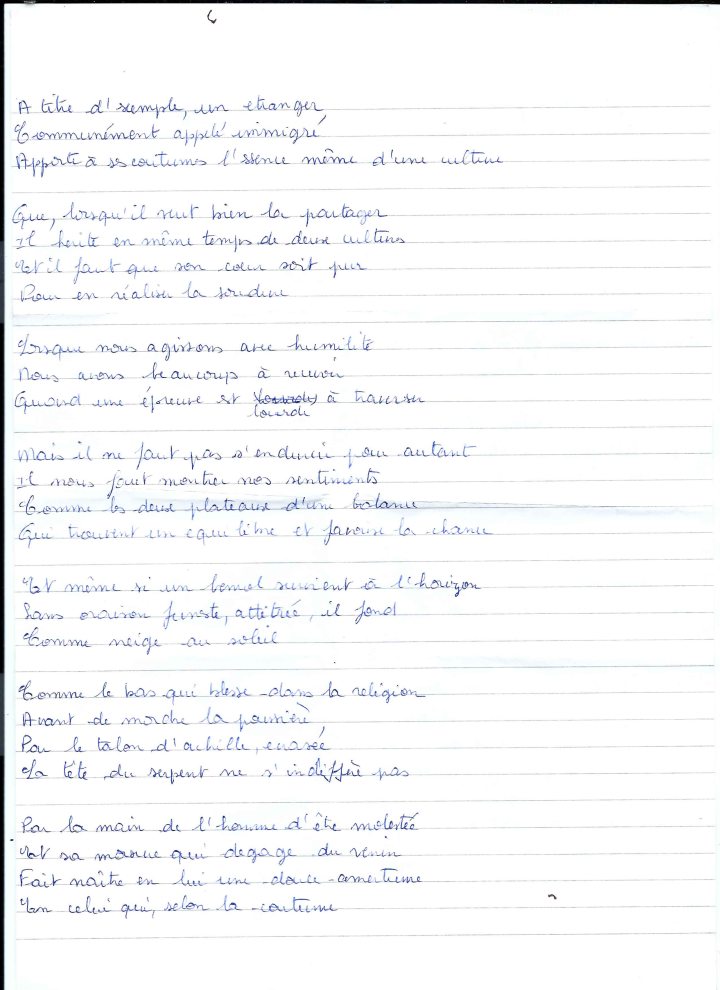 A titre d'exemple, un etranger,
Communément appelé immigré,
Apporte à ses coutumes l'essence même d'une culture
Que, lorsqu'il veut bien la partager
Il hérite en même temps de deux cultures
Et il faut que son cœur soit pur
Pour en réaliser la soudure
Lorsque nous agissons avec humilité
Nous avons beaucoup à recevoir
Quand une épreuve est lourde à traverser
Mais il ne faut pas s'endurcir pour autant
Il nous faut montrer nos sentiments
Comme les deux plateaux d'une balance
Qui trouvent un equilibre et favorise la chance
Et même si un bemol survient à l'horizon
Sans oraison funeste, attitrée, il fond
Comme neige au soleil
Comme le bas qui blesse dans la religion
Avant de mordre la poussière,
Par le talon d'achille, ecrasée
La tête du serpent ne s'indiffère pas
Par la main de l'homme d'être molestée
Et sa morsure qui degage du venin
Fait naître en lui une douce amertume
En celui qui, selon la coutume